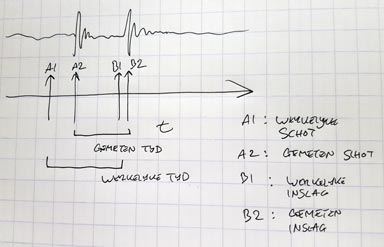 A1 A2 B1 B2
t
GEMETEN TYD
WERKELYKE TYD
A1 : WERKELYKE
SCHOT
A2 : GEMETEN SCHOT
B1 : WERKELYKE
INSLAG
B2 : GEMETEN
INSLAG